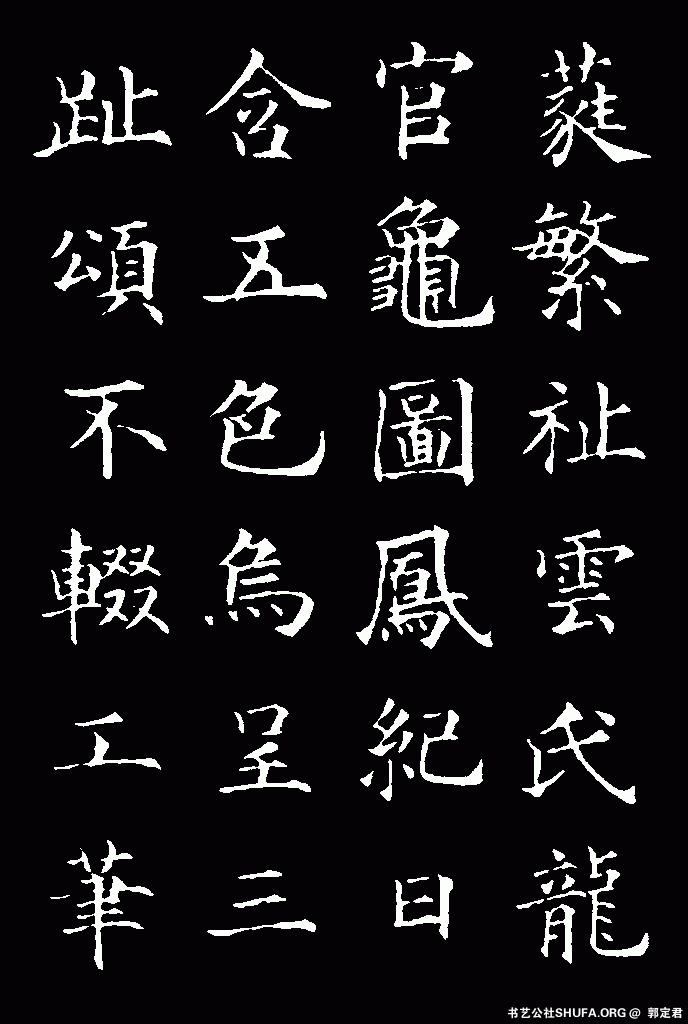 蕤繁祉雲氏龍
官龜圖鳳紀日
含五色烏呈三
趾頌不輟工筆
书艺公社SHUFA.ORG @ 郭定君